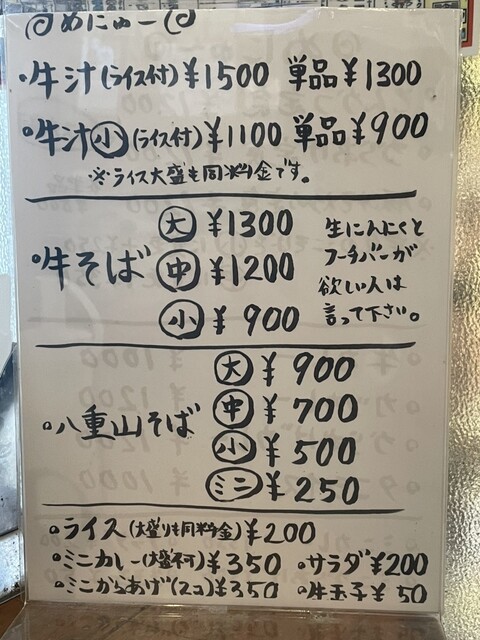 ◎めにゅー◎
・牛汁(ライス付)¥1500 単品¥1300
・牛汁小(ライス付)¥1100 単品¥900
※ライス大盛も同料金です。
・牛そば
大 ¥1300
中 ¥1200
小 ¥900
生にんにくと
フーチバーが
欲しい人は
言って下さい。
・八重山そば
大 ¥900
中 ¥700
小 ¥500
ミニ ¥250
・ライス(大盛りも同料金)¥200
・ミニカレー(大盛不可)¥350 ・サラダ¥200
・ミニからあげ(2コ)¥350 ・生玉子¥50